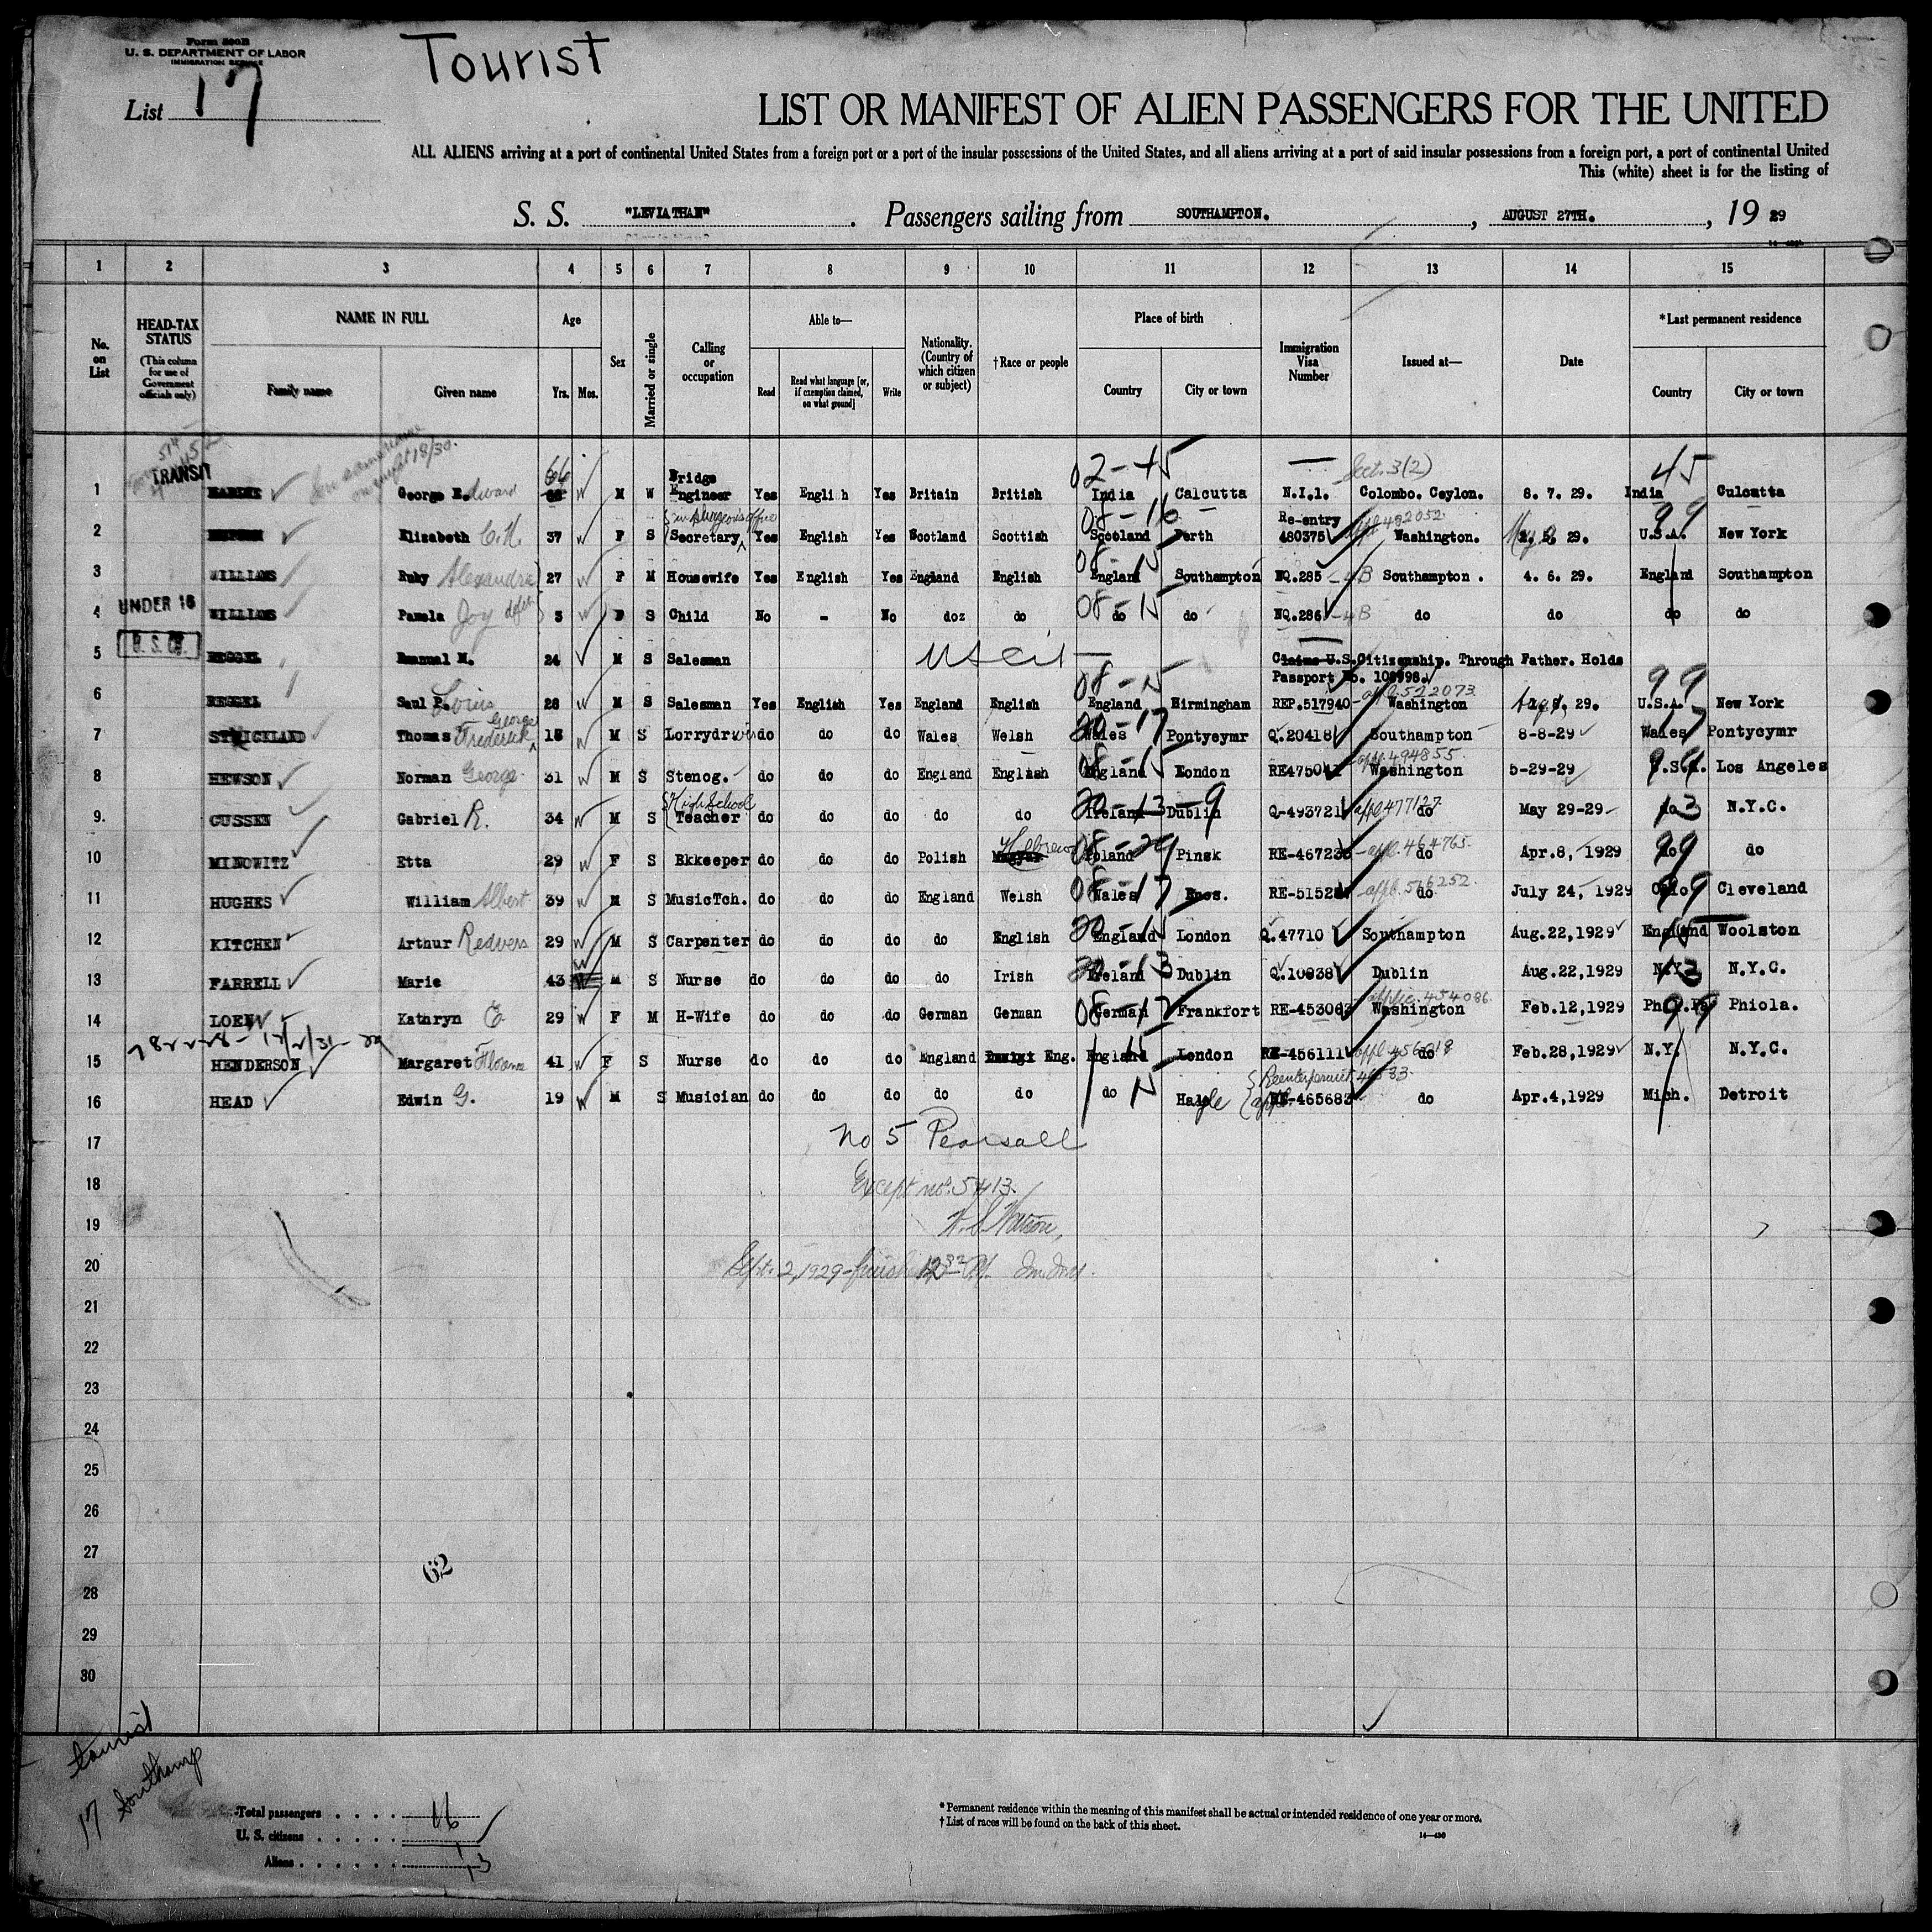 Form 500B
U. S. DEPARTMENT OF LABOR
IMMIGRATION SERVICE
Tourist
List 17
LIST OR MANIFEST OF ALIEN PASSENGERS FOR THE UNITED
ALL ALIENS arriving at a port of continental United States from a foreign port or a port of the insular possessions of the United States, and all aliens arriving at a port of said insular possessions from a foreign port, a port of continental United
This (white) sheet is for the listing of
S. S. "LEVIATHAN". Passengers sailing from SOUTHAMPTON. , AUGUST 27TH. , 19 29
1 2 3 4 5 6 7 8 9 10 11 12 13 14 15
No. on List
HEAD-TAX STATUS
(This column for use of Government officials only)
NAME IN FULL
Family name Given name
Age
Yrs. Mos.
Sex
Married or single
Calling or occupation
Able to—
Read Read what language [or, if exemption claimed, on what ground] Write
Nationality. (Country of which citizen or subject)
†Race or people
Place of birth
Country City or town
Immigration Visa Number
Issued at—
Date
*Last permanent residence
Country City or town
TRANSIT
02-45 Sect. 3(2) 45
1 George Edward 64 M W Bridge Engineer Yes English Yes Britain British India Calcutta N.I.1. Colombo. Ceylon. 8. 7. 29. India Culcatta
08-16 99
2 Elizabeth C.K. 37 F S Secretary Yes English Yes Scotland Scottish Scotland Perth Re-entry 480375 Washington. May 29. U.S.A. New York
08-15
3 WILLIAMS Ruby Alexandra 27 F M Housewife Yes English Yes England English England Southampton NQ.285 -4B Southampton. 4. 6. 29. England Southampton
UNDER 16
08-15
4 WILLIAMS Pamela Joy 3 F S Child No - No doz do do do NQ.286 -4B do do do do
U.S.C.
5 Emanual M. 24 M S Salesman US Cit — Claims U.S.Citizenship. Through Father. Holds
Passport No. 108998.
08-15 appl.522073 99
6 Saul P. Louis 28 M S Salesman Yes English Yes England English England Birmingham REP.517940 Washington 29. U.S.A. New York
20-17
7 STRICKLAND Thomas Frederick George 18 M S Lorrydrver do do do Wales Welsh Wales Pontycymr Q.20418 Southampton 8-8-29 Wales Pontycymr
08-15 appl.494855 99
8 HEWSON Norman George 31 M S Stenog. do do do England English England London RE475041 Washington 5-29-29 U.S.A. Los Angeles
20-13-9
9. CUSSEN Gabriel R. 34 M S High School Teacher do do do do do Ireland Dublin Q-493721 appl477127 do May 29-29 do N.Y.C.
08-29 appl.464765 99
10 MINOWITZ Etta 29 F S Bkkeeper do do do Polish Hebrew Poland Pinsk RE-46723 do Apr.8, 1929 do do
08-17 appl.516252 99
11 HUGHES William Albert 39 M S MusicTch. do do do England Welsh Wales RE-5152 do July 24, 1929 Ohio Cleveland
20-15
12 KITCHEN Arthur Redvers 29 M S Carpenter do do do do English England London Q.47710 Southampton Aug.22,1929 England Woolston
20-13
13 FARRELL Marie 43 M S Nurse do do do do Irish Ireland Dublin Q.10938 Dublin Aug.22,1929 N.Y. N.Y.C.
08-12 applic.454086 99
14 LOEW Kathryn E 29 F M H-Wife do do do German German German Frankfort RE-453083 Washington Feb.12,1929 Phil.Pa Phiola.
15 HENDERSON Margaret 41 F S Nurse do do do England Eng. England London RE-456111 do Feb.28,1929 N.Y. N.Y.C.
16 HEAD Edwin G. 19 M S Musician do do do do do do RE-465683 do Apr.4,1929 Mich. Detroit
17 No 5 Pearsall
18 Except nos. 5 & 13.
19 Watson,
20 Sept. 2, 1929
21
22
23
24
25
26
27
28
29
30
62
tourist
17 Southamp
Total passengers . . . . 16
U. S. citizens . . . . .
Aliens . . . . . . 13
* Permanent residence within the meaning of this manifest shall be actual or intended residence of one year or more.
† List of races will be found on the back of this sheet.
14—430